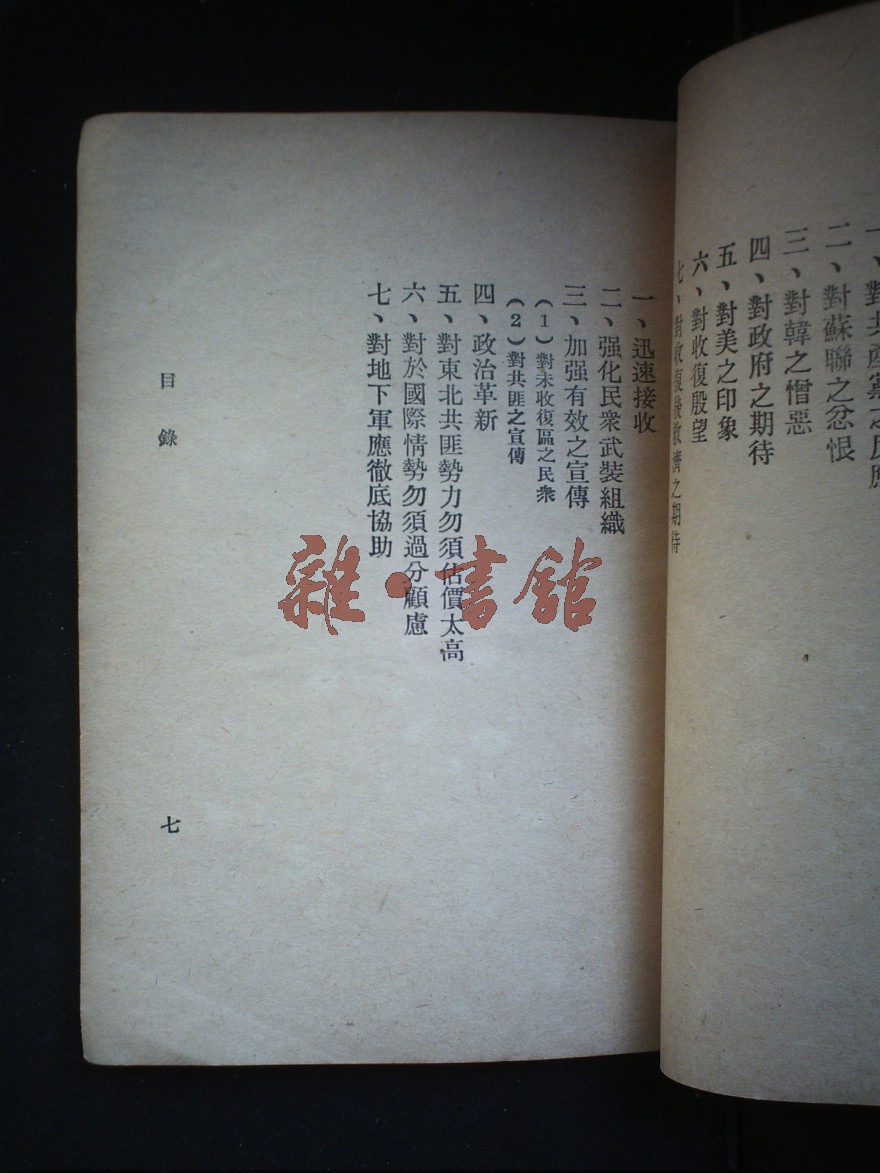 一、對共產黨之反應
二、對蘇聯之忿恨
三、對韓之憎惡
四、對政府之期待
五、對美之印象
六、對收復殷望
七、對收復後救濟之期待
一、迅速接收
二、强化民衆武裝組織
三、加强有效之宣傳
(1)對未收復區之民衆
(2)對共匪之宣傳
四、政治革新
五、對東北共匪勢力勿須估價太高
六、對於國際情勢勿須過分顧慮
七、對地下軍應徹底協助
目錄
七
雜·書館